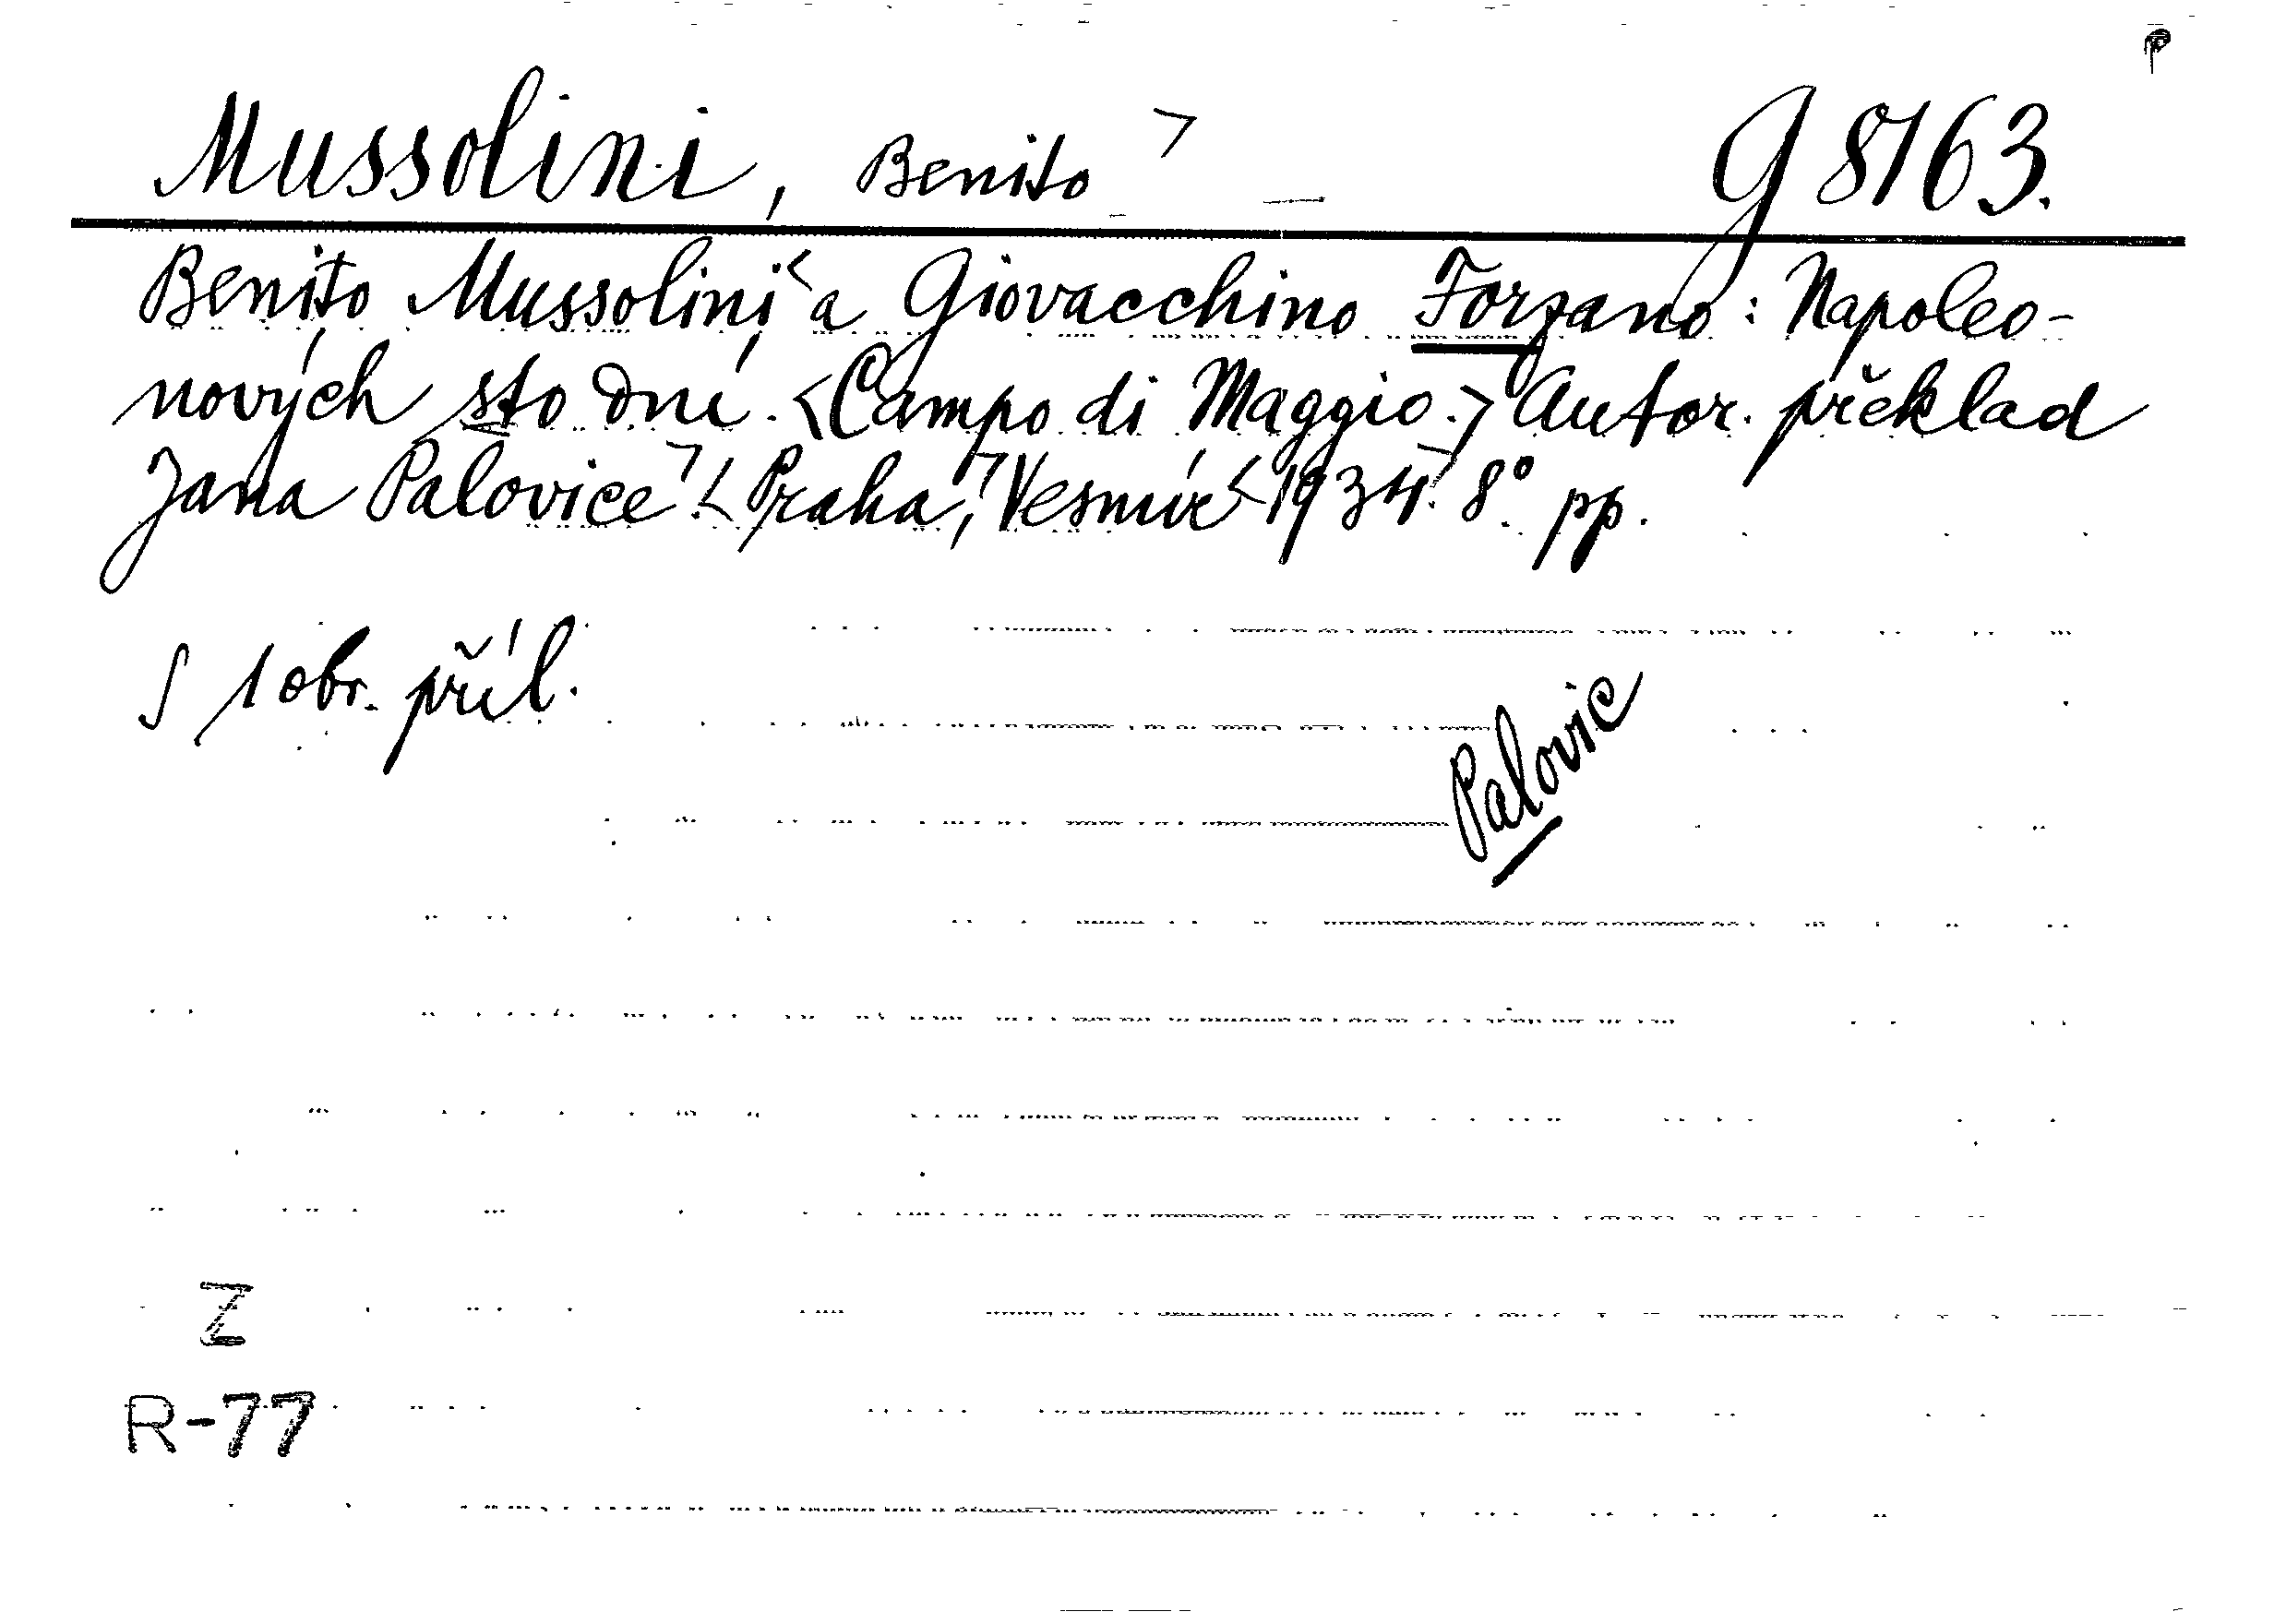 Mussolini, Benito > — g 8163.
Benito Mussolini < a Giovacchino Forzano: Napoleo-
nových sto dní. <Campo di Maggio.> Autor. překlad
Jana Palovice >. < Praha, > Vesmír < 1934. > 8° pp.
S 1 obr. příl.
Palovic
Z
R-77